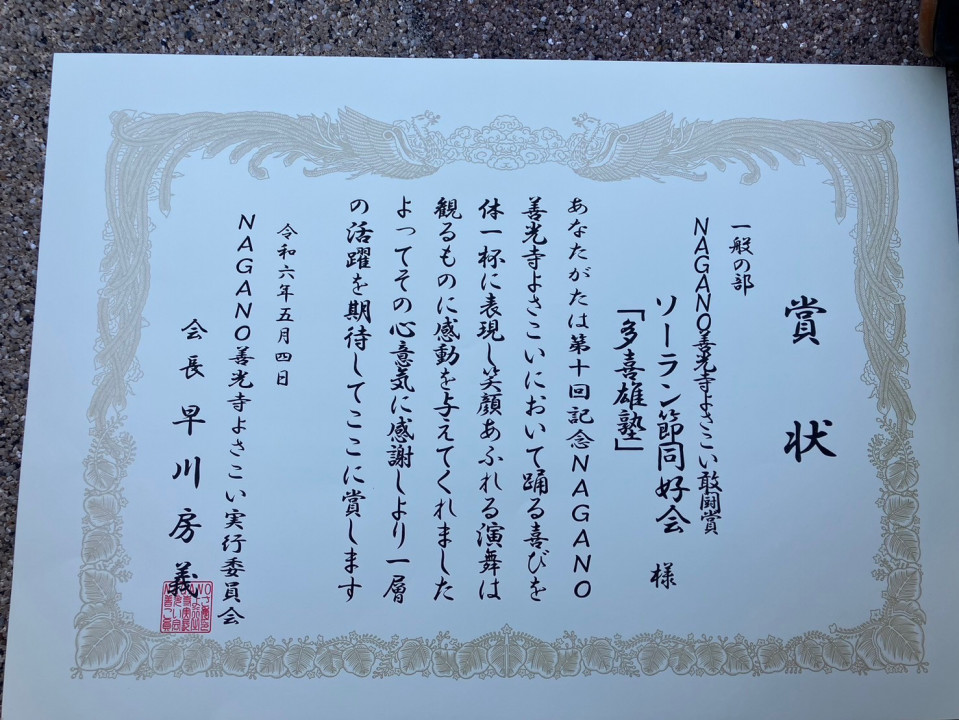 賞状
一般の部
NAGANO善光寺よさこい敢闘賞
ソーラン節同好会
「多喜雄塾」
様
あなたがたは第十回記念NAGANO
善光寺よさこいにおいて踊る喜びを
体一杯に表現し笑顔あふれる演舞は
観るものに感動を与えてくれました
よってその心意気に感謝しより一層
の活躍を期待してここに賞します
令和六年五月四日
NAGANO善光寺よさこい実行委員会
会長 早川房義